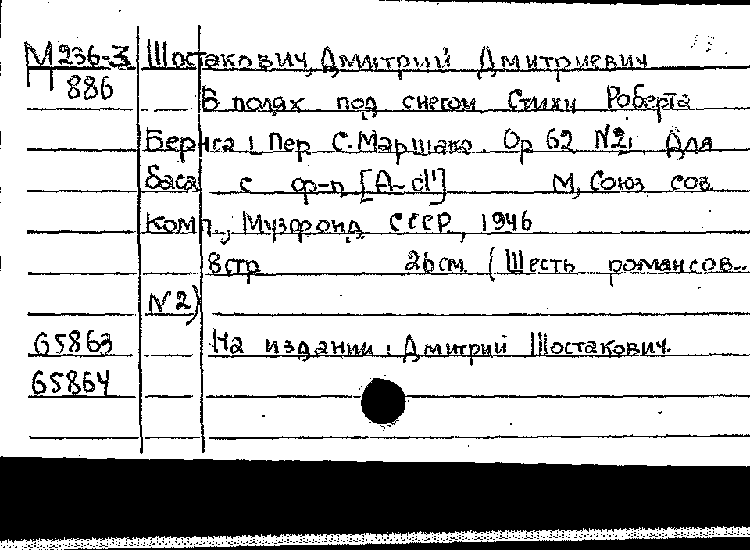 М236-3 Шостакович, Дмитрий Дмитриевич
П 886 В полях под снегом. Стихи Роберта
Бернса; Пер С. Маршака. Ор 62 №2; Для
баса с ф-п [A-d¹] М, Союз сов
комп., Музфонд СССР, 1946
8 стр 26 см (Шесть романсов..
№2)
65863 На издании: Дмитрий Шостакович.
65864